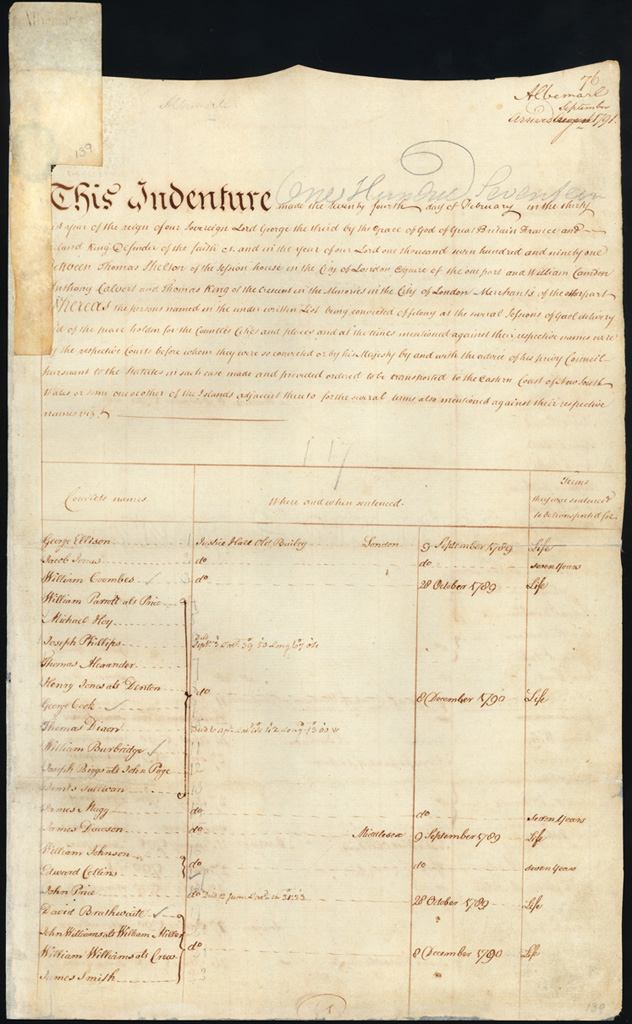 76
Albemarl
September
arrived 1791
Albemarle
139
One Hundred Seventeen
This Indenture made the twenty fourth day of February in the thirty
first year of the reign of our Sovereign Lord George the third by the Grace of God of Great Britain France and
Ireland King Defender of the faith &c. and in the year of our Lord one thousand seven hundred and ninety one
Between Thomas Shelton of the Session house in the City of London Esquire of the one part and William Camden
Anthony Calvert and Thomas King of the Crescent in the Minories in the City of London Merchants of the other part
Whereas the persons named in the under written List being convicted of felony at the several Sessions of Gaol delivery
and of the peace holden for the Counties Cities and places and at the times mentioned against their respective names were
by the respective Courts before whom they were so convicted or by his Majesty by and with the advice of his privy Council
pursuant to the Statutes in such case made and provided ordered to be transported to the Eastern Coast of New South
Wales or some one or other of the Islands adjacent thereto for the several terms also mentioned against their respective
names viz.t
117
Convicts names Where and when sentenced Terms
they were sentenced
to be transported for
George Ellison 1 Justice Hall Old Bailey London 9 September 1789 Life
Jacob Jones do do seven Years
William Coombes 3 do 28 October 1789 Life
William Parrott als Price
Michael Hoy
Joseph Phillips
Thomas Alexander
Henry Jones als Denton do 8 December 1790 Life
George Cook
Thomas Dixon
William Burbridge 11
Joseph Biggs als John Page 12
Dennis Sullivan 13
James Stagg do do seven Years
James Dawson do Middlesex 9 September 1789 Life
William Johnson
Edward Collins do do seven Years
John Price do 28 October 1789 Life
David Brathwaite
John Williams als William Miller
William Williams als Crew do 8 December 1790 Life
James Smith
139